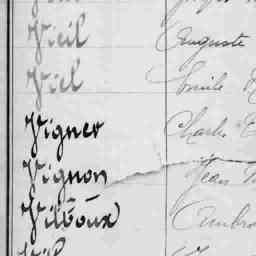 Vieil Auguste
Viel Emile
Vigner Charles
Vignon Jean
Vilboux Ambro